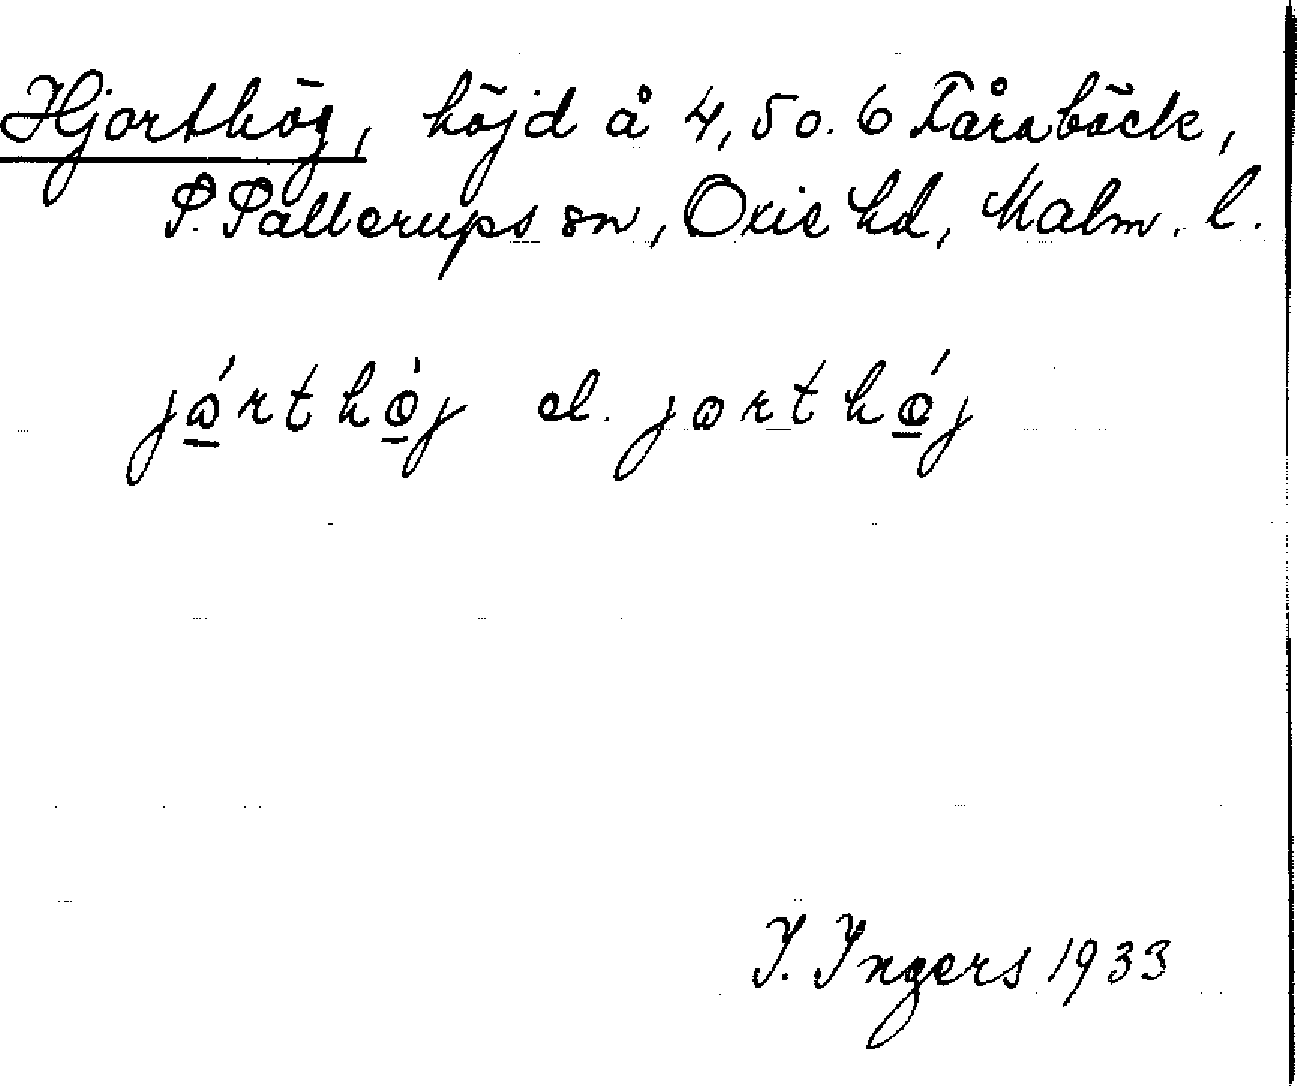 Hjorthög, höjd å 4, 5 o. 6 Fårabäck,
S. Sallerups sn, Oxie hd, Malm. l.
jɷ́rthø̀j el. jɷrthǿj
I. Ingers 1933